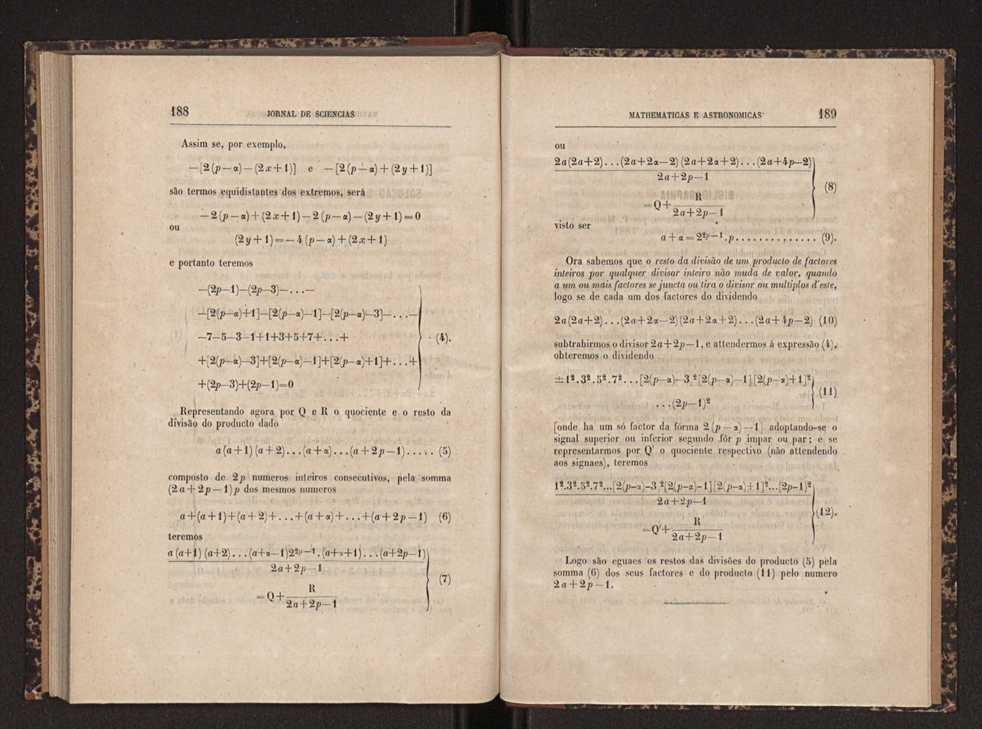 188 JORNAL DE SCIENCIAS
Assim se, por exemplo,
—[2(p—α)—(2x+1)] e —[2(p—α)+(2y+1)]
são termos equidistantes dos extremos, será
—2(p—α)+(2x+1)—2(p—α)—(2y+1)=0
ou
(2y+1)=—4(p—α)+(2x+1)
e portanto teremos
—(2p—1)—(2p—3)—...—
—[2(p—α)+1]—[2(p—α)—1]—[2(p—α)—3]—...—
—7—5—3—1+1+3+5+7+...+ (4).
+[2(p—α)—3]+[2(p—α)—1]+[2(p—α)+1]+...+
+(2p—3)+(2p—1)=0
Representando agora por Q e R o quociente e o resto da
divisão do producto dado
a(a+1)(a+2)...(a+α)...(a+2p—1)..... (5)
composto de 2p numeros inteiros consecutivos, pela somma
(2a+2p—1)p dos mesmos numeros
a+(a+1)+(a+2)+...+(a+α)+...+(a+2p—1) (6)
teremos
a(a+1)(a+2)...(a+α—1)2²ᵖ⁻¹.(a+α+1)...(a+2p—1)
2a+2p—1
(7)
=Q+ R
2a+2p—1
MATHEMATICAS E ASTRONOMICAS 189
ou
2a(2a+2)...(2a+2α—2)(2a+2α+2)...(2a+4p—2)
2a+2p—1
(8)
=Q+ R
2a+2p—1
visto ser
a+α=2²ᵖ⁻¹.p.............. (9).
Ora sabemos que o resto da divisão de um producto de factores
inteiros por qualquer divisor inteiro não muda de valor, quando
a um ou mais factores se juncta ou tira o divisor ou multiplos d'este,
logo se de cada um dos factores do dividendo
2a(2a+2)...(2a+2α—2)(2a+2α+2)...(2a+4p—2) (10)
subtrahirmos o divisor 2a+2p—1, e attendermos á expressão (4),
obteremos o dividendo
±1².3².5².7²...[2(p—α)—3]²[2(p—α)—1][2(p—α)+1]²
(11)
...(2p—1)²
[onde ha um só factor da fórma 2(p—α)—1] adoptando-se o
signal superior ou inferior segundo fôr p impar ou par; e se
representarmos por Q' o quociente respectivo (não attendendo
aos signaes), teremos
1².3².5².7²...[2(p—α)—3]²[2(p—α)—1][2(p—α)+1]²...[2p—1)²
2a+2p—1
(12).
=Q'+ R
2a+2p—1
Logo são eguaes os restos das divisões do producto (5) pela
somma (6) dos seus factores e do producto (11) pelo numero
2a+2p—1.